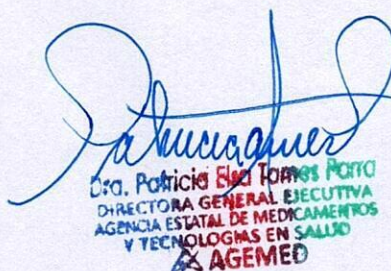 Dra. Patricia Elsa Tames Parra
DIRECTORA GENERAL EJECUTIVA
AGENCIA ESTATAL DE MEDICAMENTOS
Y TECNOLOGIAS EN SALUD
AGEMED